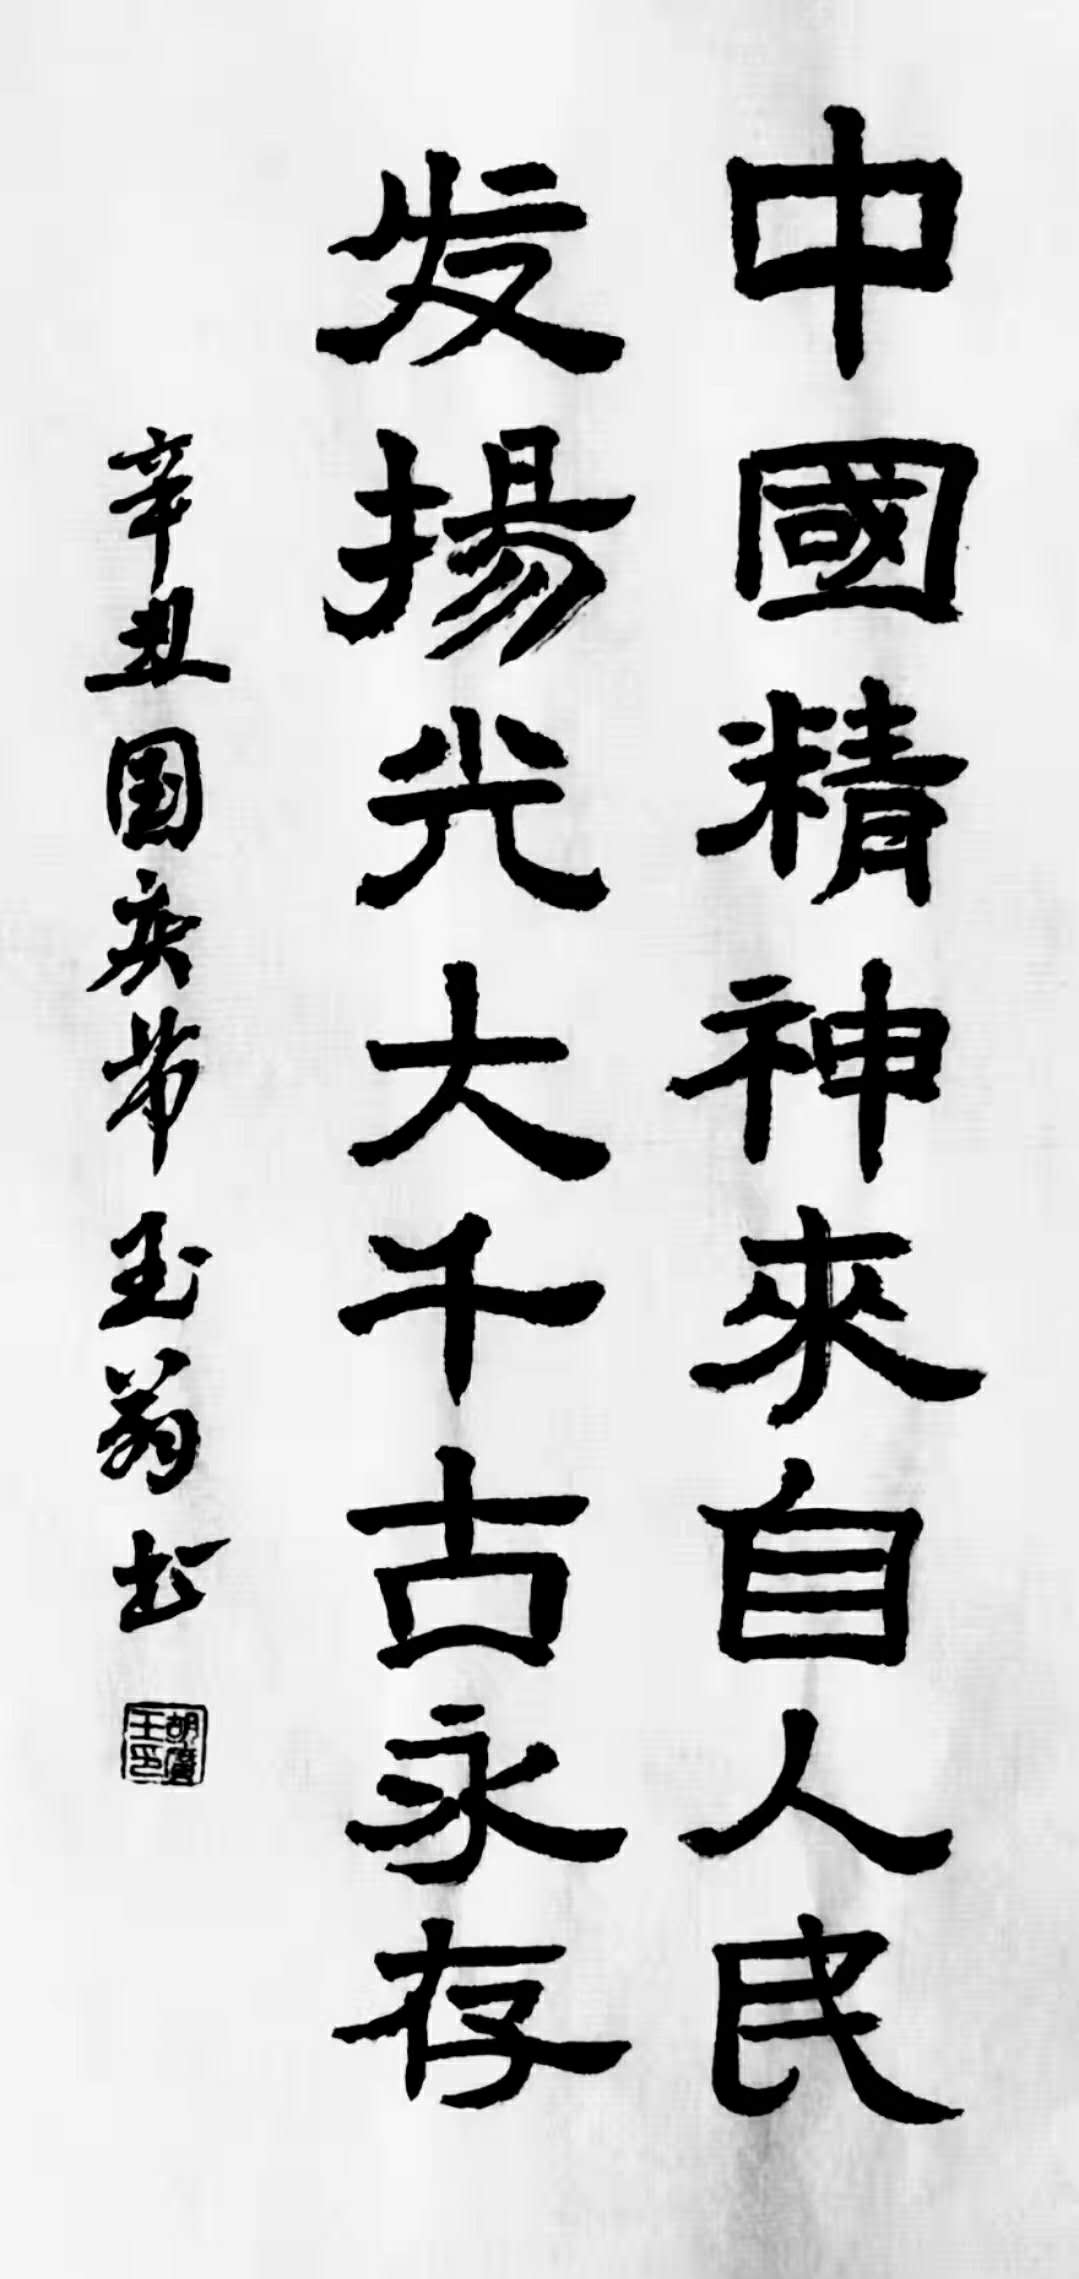 中國精神來自人民
发揚光大千古永存
辛丑国庆节玉翁书
胡廣玉印